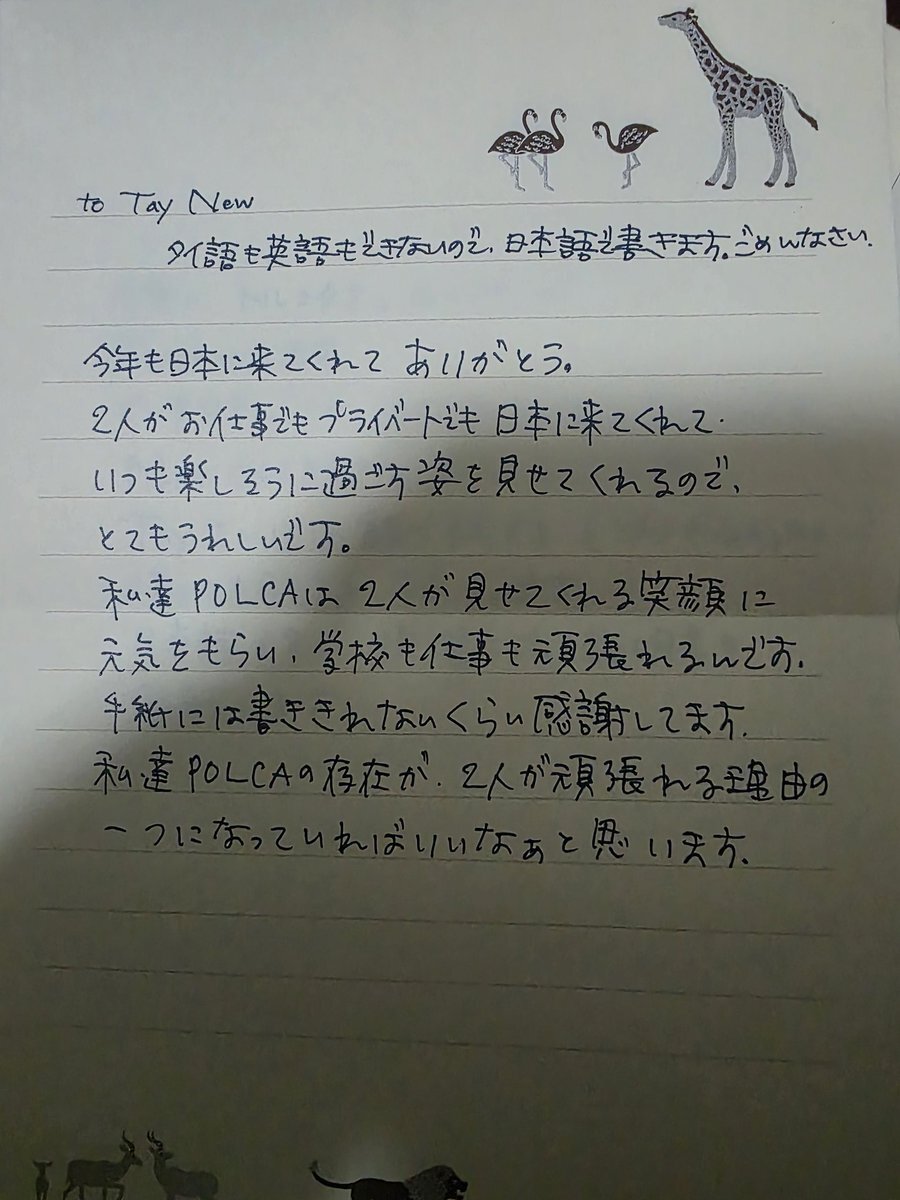 to Tay New
タイ語も英語もできないので、日本語で書きます。ごめんなさい.
今年も日本に来てくれて ありがとう。
2人が お仕事でも プライベートでも 日本に来てくれて.
いつも楽しそうに過ごす姿を見せてくれるので、
とてもうれしいです。
私達 POLCAは 2人が見せてくれる笑顔に
元気をもらい、学校も仕事も頑張れるんです.
手紙には書ききれないくらい感謝してます.
私達 POLCAの存在が、2人が頑張れる理由の
一つになっていればいいなぁと思います.